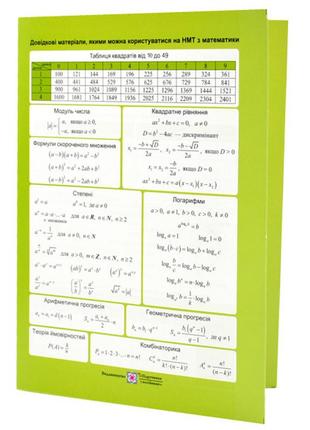 Довідкові матеріали, якими можна користуватися на НМТ з математики
Таблиця квадратів від 10 до 49
0 1 2 3 4 5 6 7 8 9
1 100 121 144 169 196 225 256 289 324 361
2 400 441 484 529 576 625 676 729 784 841
3 900 961 1024 1089 1156 1225 1296 1369 1444 1521
4 1600 1681 1764 1849 1936 2025 2116 2209 2304 2401
Модуль числа
|a| = { a, якщо a ≥ 0,
-a, якщо a < 0
Формули скороченого множення
(a-b)(a+b) = a² - b²
(a+b)² = a² + 2ab + b²
(a-b)² = a² - 2ab + b²
Квадратне рівняння
ax² + bx + c = 0, a ≠ 0
D = b² - 4ac — дискримінант
x₁ = (-b-√D)/2a, x₂ = (-b+√D)/2a, якщо D > 0
x₁ = x₂ = -b/2a, якщо D = 0
ax² + bx + c = a(x-x₁)(x-x₂)
Степені
a¹ = a a⁰ = 1, де a ≠ 0
для a ∈ R, n ∈ N, n ≥ 2
Логарифми
a > 0, a ≠ 1, b > 0, c > 0, k ≠ 0
logₐ a = 1 logₐ 1 = 0
logₐ(b·c) = logₐ b + logₐ c
logₐ b/c = logₐ b - logₐ c
logₐ bⁿ = n·logₐ b
Арифметична прогресія
aₙ = a₁ + d(n-1) Sₙ = (a₁+aₙ)/2·n
Геометрична прогресія
bₙ = b₁·qⁿ⁻¹ Sₙ = b₁(qⁿ-1)/(q-1), де q ≠ 1
Теорія ймовірностей
P(A) = k/n
Комбінаторика
Pₙ = 1·2·3·...·n = n! Cₙᵏ = n!/(k!·(n-k)!) Aₙᵏ = n!/(n-k)!